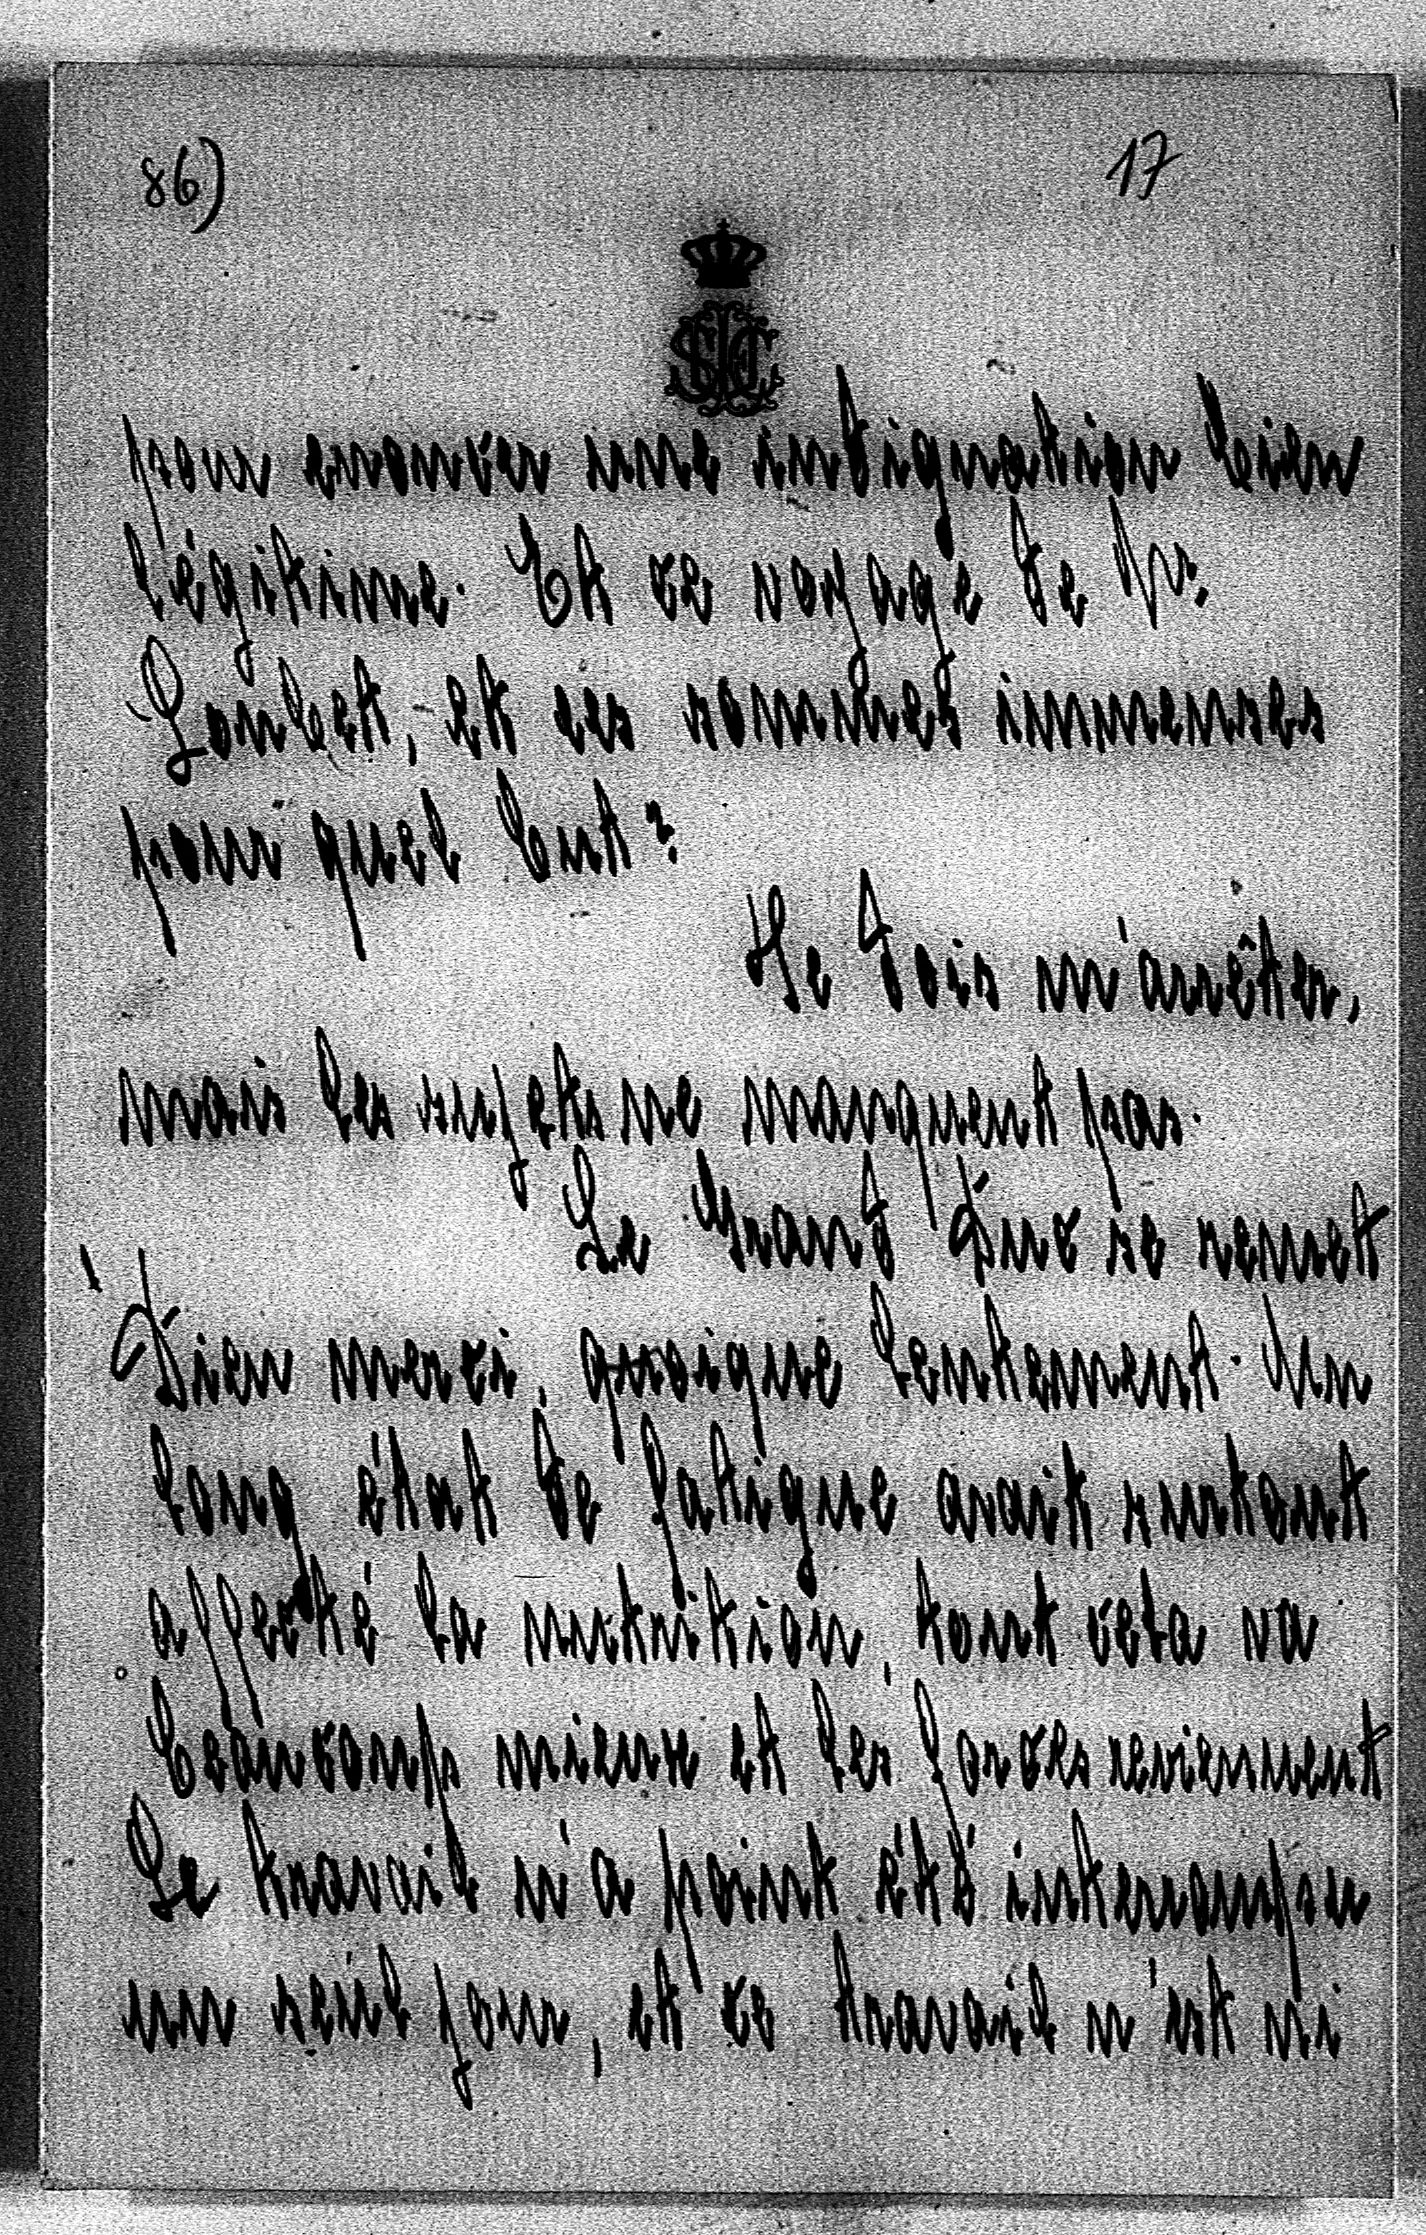 86) 17
pour enomver une indignation bien
légitime. Et ce voyage de Mr.
Loubet, et ces sommes immenses
pour quel but?
Je dois m'arrêter,
mais les sujets ne manquent pas.
Le Grand Duc se remet
Dieu merci, quoique lentement. Un
long état de fatigue avait surtout
affecté la nutrition, tout cela va
beaucoup mieux et les forces reviennent
Le travail n'a point été interrompu
un seul jour, et ce travail n'est ni